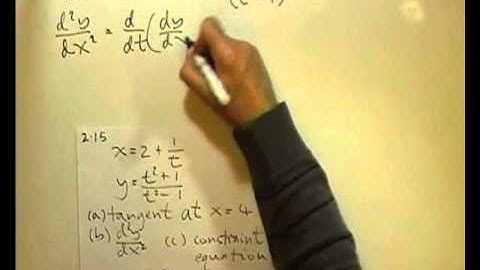 d²y/dx² = d/dt (dy/d
2.15
x = 2 + 1/t
y = t²+1/t²-1
(a) tangent at x = 4
(b) d²y/dx² (c) constraint
equation